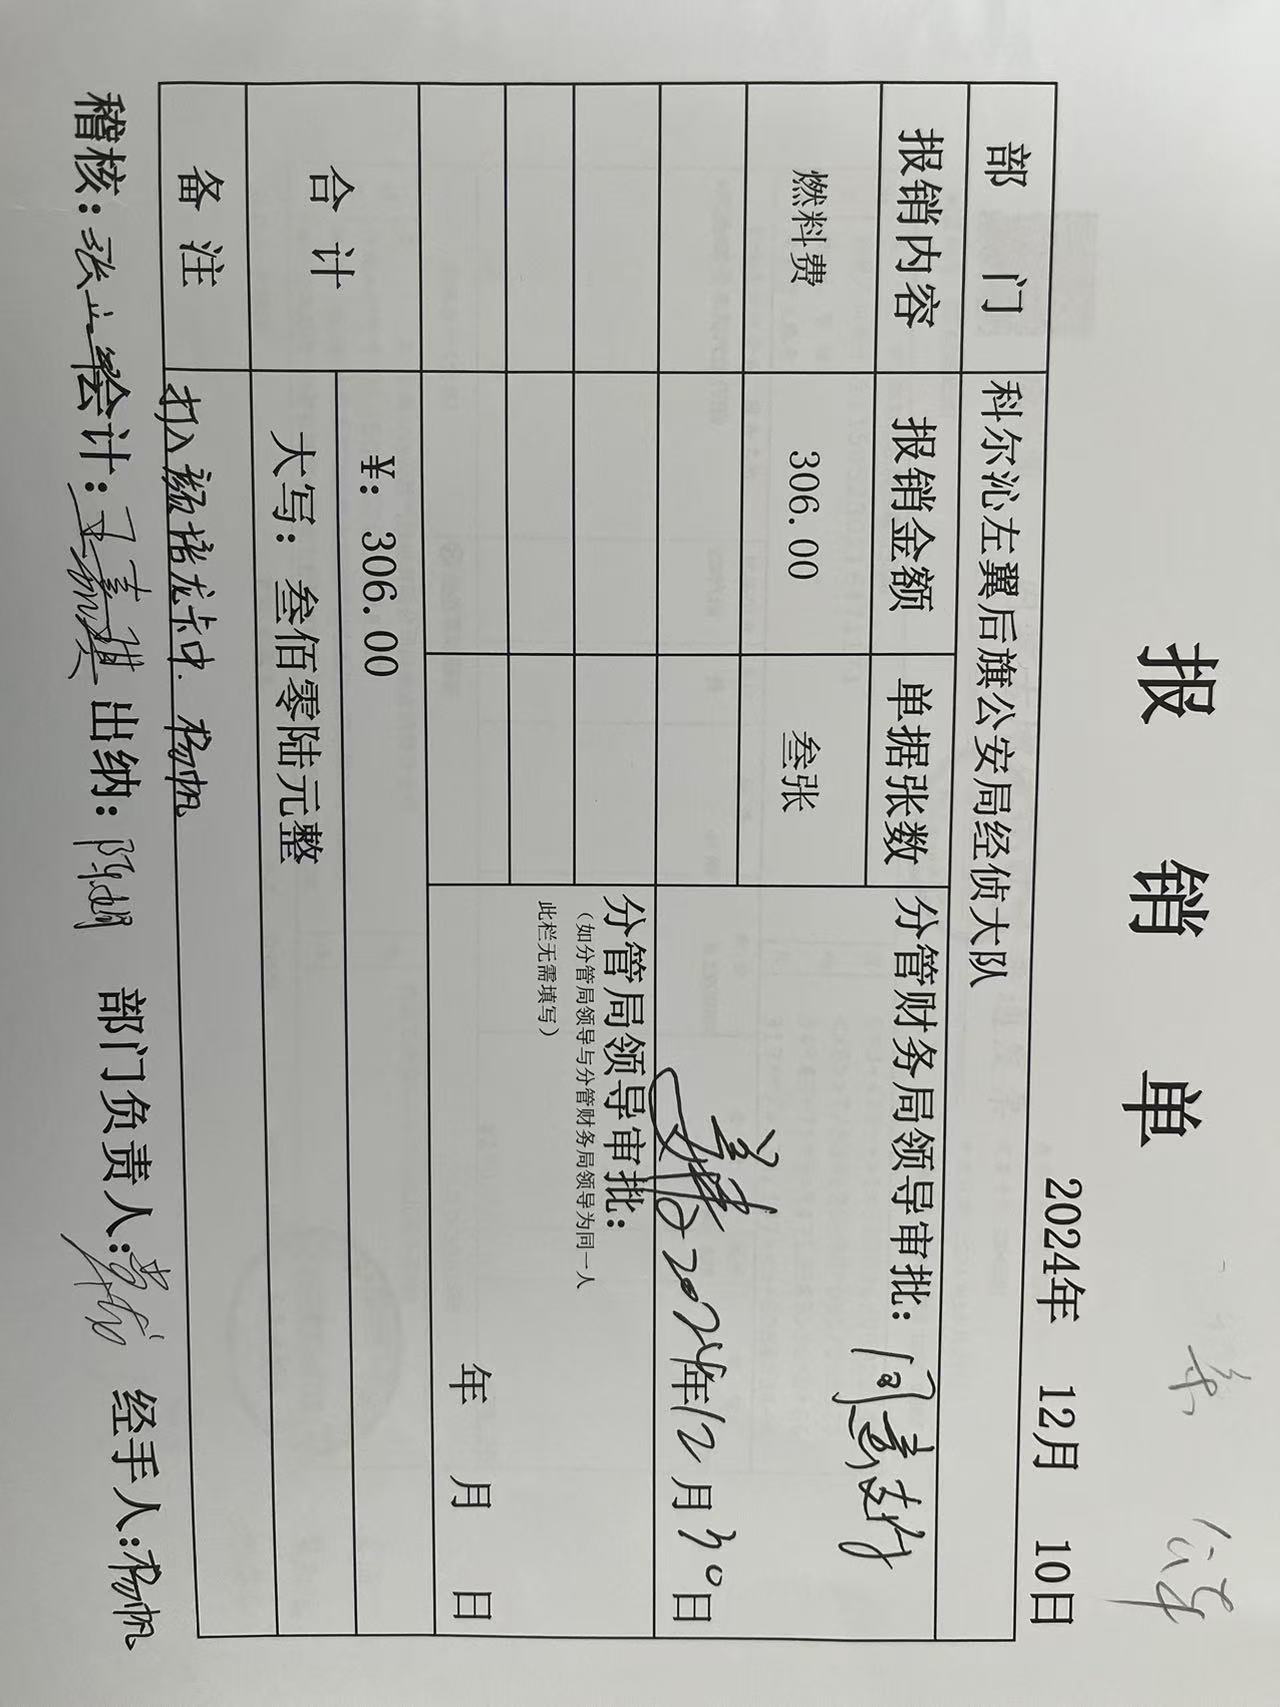 报 销 单
2024年 12月 10日
部 门 科尔沁左翼后旗公安局经侦大队
报销内容 报销金额 单据张数 分管财务局领导审批:
燃料费 306.00 叁张
2024年12月30日
分管局领导审批:
(如分管局领导与分管财务局领导为同一人
此栏无需填写)
年 月 日
合 计 ¥: 306.00
大写: 叁佰零陆元整
备 注 打入颜培龙卡中. 杨帆
稽核: 会计: 王嘉琪 出纳: 陈娟 部门负责人: 经手人: 杨帆